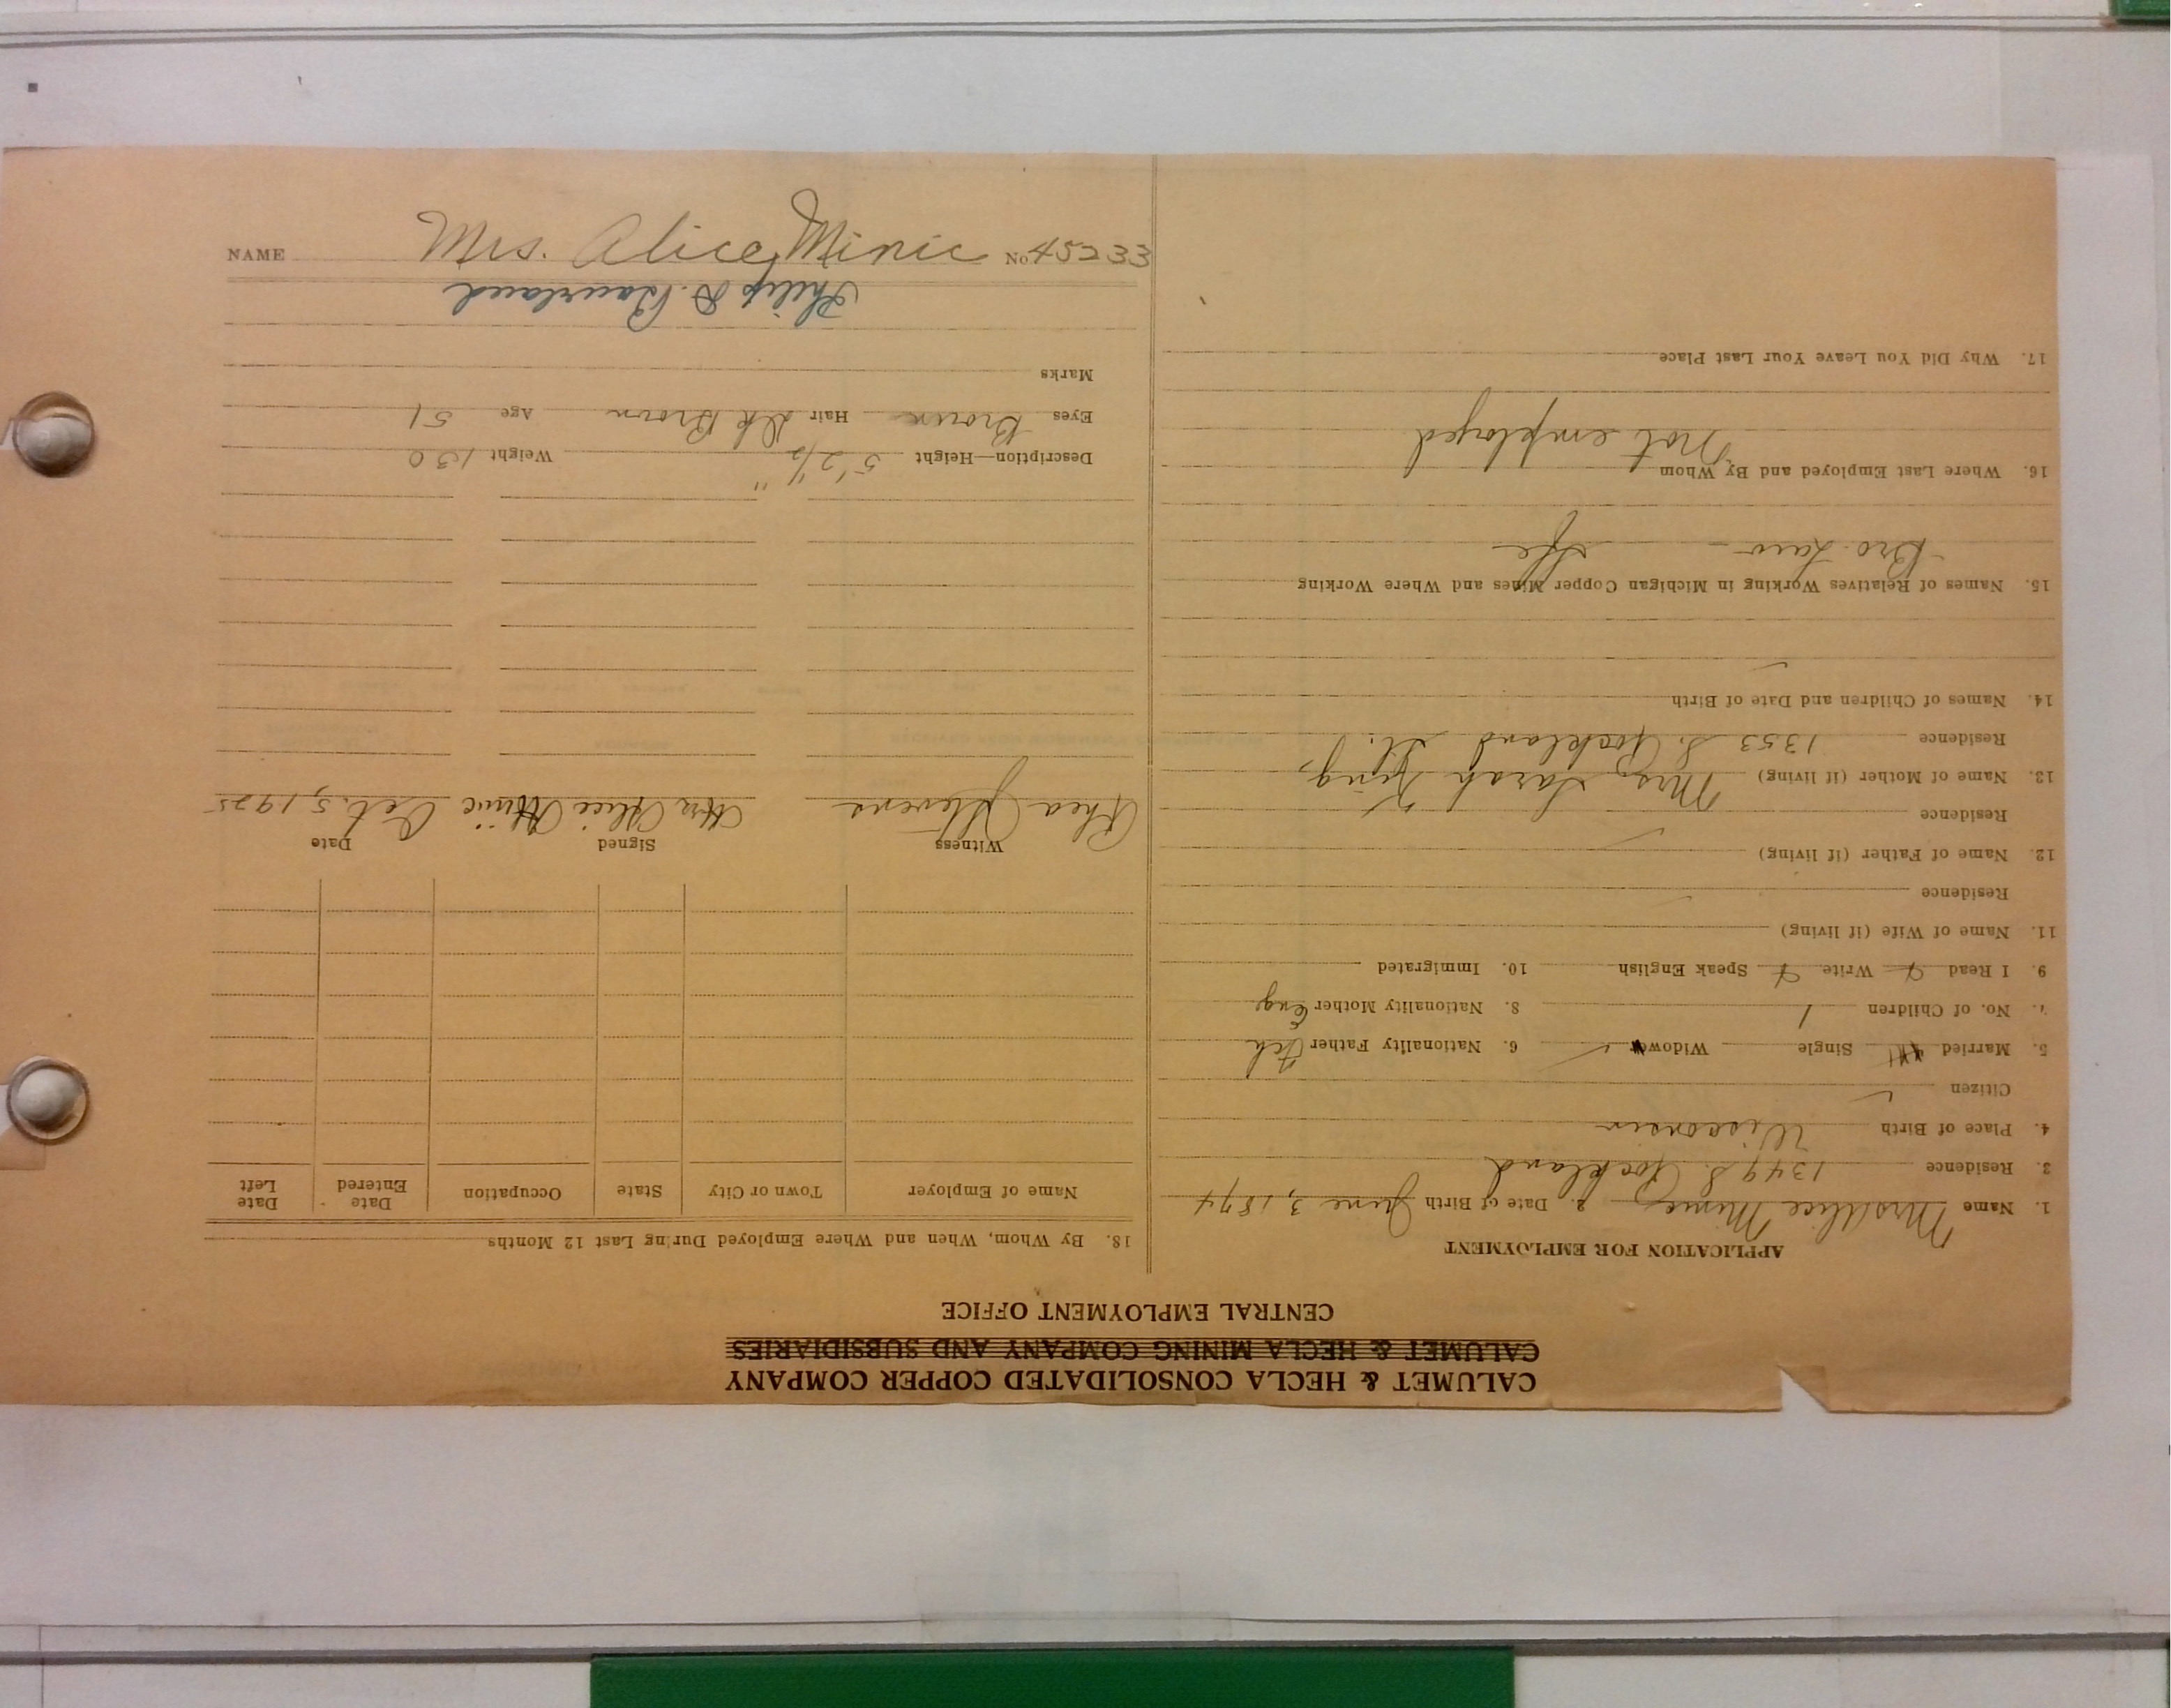 CALUMET & HECLA CONSOLIDATED COPPER COMPANY
CALUMET & HECLA MINING COMPANY AND SUBSIDIARIES
CENTRAL EMPLOYMENT OFFICE
APPLICATION FOR EMPLOYMENT
1. Name Mrs Alice Minic 2. Date of Birth June 3, 1874
3. Residence 1349 S. Rockland
4. Place of Birth Wisconsin
Citizen
5. Married Single Widow 6. Nationality Father Fch
7. No. of Children 1 8. Nationality Mother Eng
9. I Read Write Speak English 10. Immigrated
11. Name of Wife (if living)
Residence
12. Name of Father (if living)
Residence
13. Name of Mother (if living) Mrs. Sarah King,
Residence 1353 S. Rockland St.
14. Names of Children and Date of Birth
15. Names of Relatives Working in Michigan Copper Mines and Where Working
Bro. Law -
16. Where Last Employed and By Whom
Not employed
17. Why Did You Leave Your Last Place
18. By Whom, When and Where Employed During Last 12 Months
Name of Employer Town or City State Occupation Date Entered Date Left
Witness Signed Date
Rhea Stevens Mrs Alice Minic Oct. 5, 1925
Description—Height 5' 2 1/2" Weight 130
Eyes Brown Hair Dk Brown Age 51
Marks
Philip D.
NAME Mrs. Alice Minic No. 45233